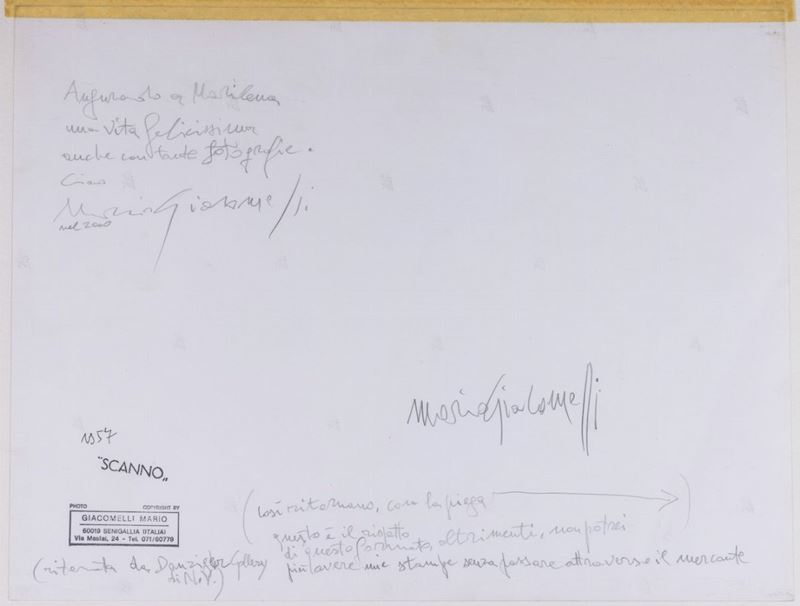 Augurando a Marilena
una vita felicissima
anche con tante fotografie.
Ciao
Mario Giacomelli
nel 2000
Mario Giacomelli
1957
"SCANNO"
PHOTO COPYRIGHT BY
GIACOMELLI MARIO
60019 SENIGALLIA (ITALIA)
Via Mastai, 24 - Tel. 071/60779
(così ritornano, con la piega →)
questo è il
di questo formato, altrimenti, non potrei
più avere mie stampe senza passare attraverso il mercante
(ritornata da Danziger Gallery
di N.Y.)